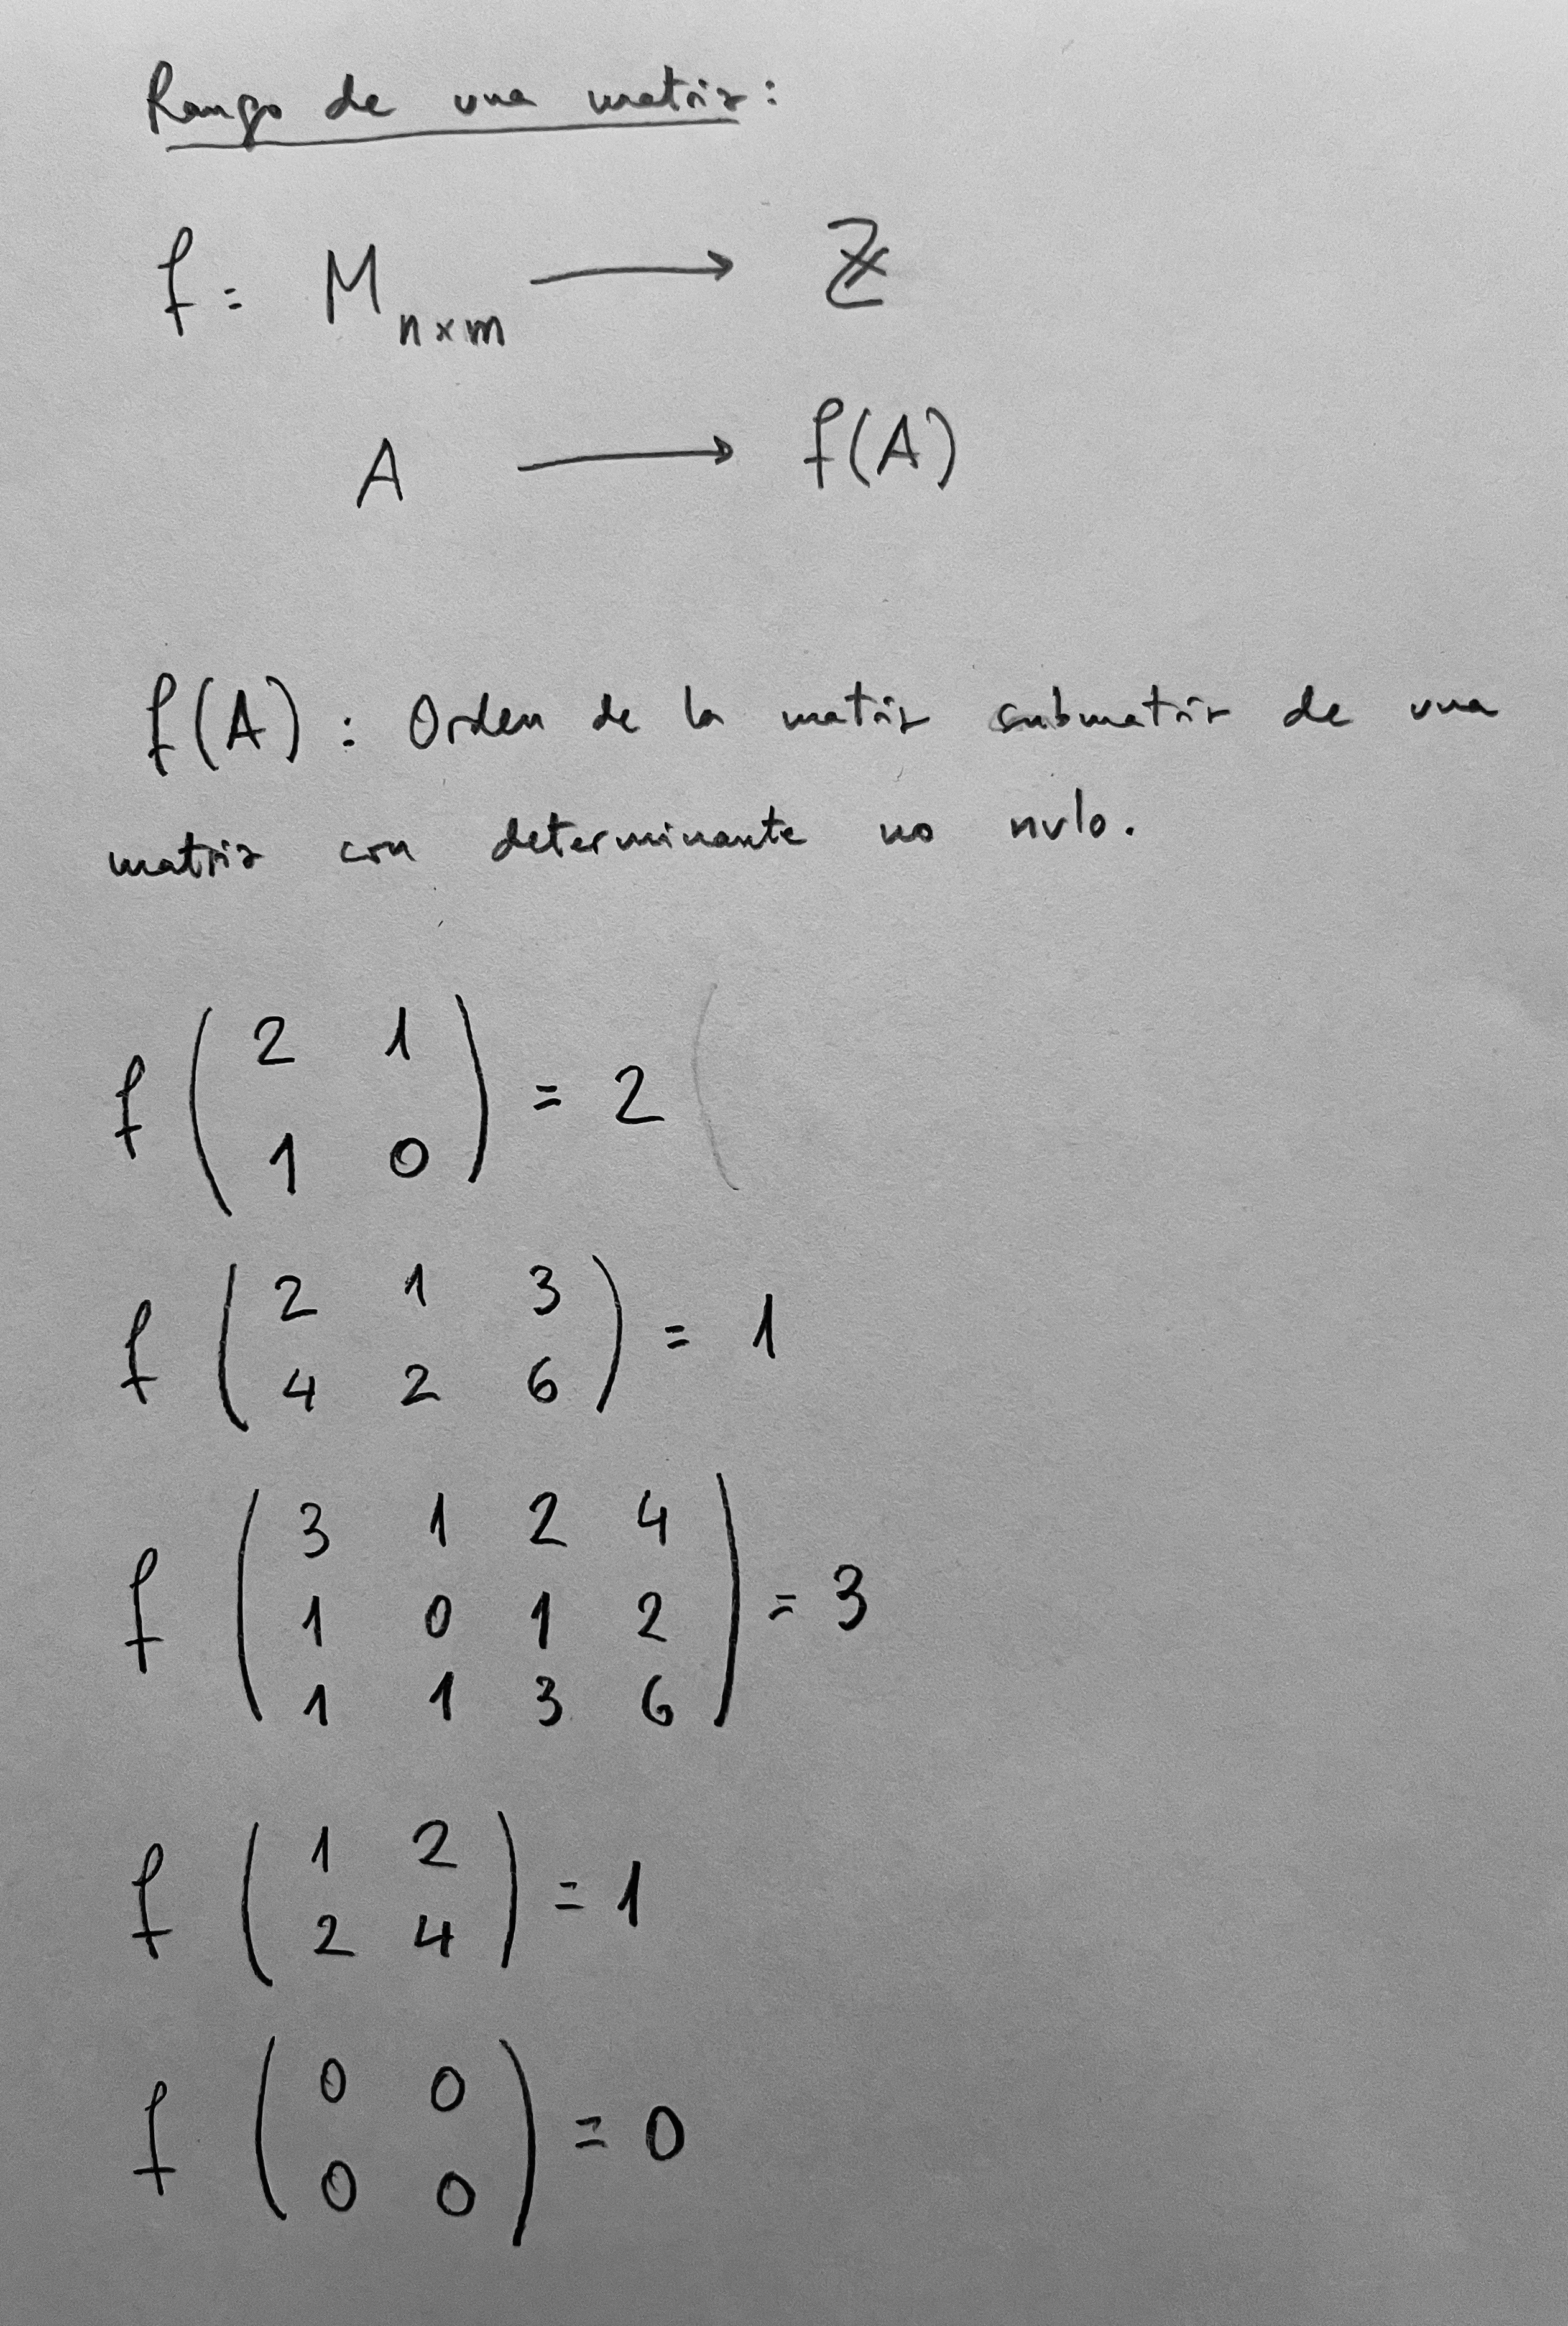 Rango de una matriz:
f = M n×m ⟶ ℤ
A ⟶ f(A)
f(A): Orden de la matriz submatriz de una
matriz con determinante no nulo.
f ( 2 1
1 0 ) = 2 (
f ( 2 1 3
4 2 6 ) = 1
f ( 3 1 2 4
1 0 1 2
1 1 3 6 ) = 3
f ( 1 2
2 4 ) = 1
f ( 0 0
0 0 ) = 0